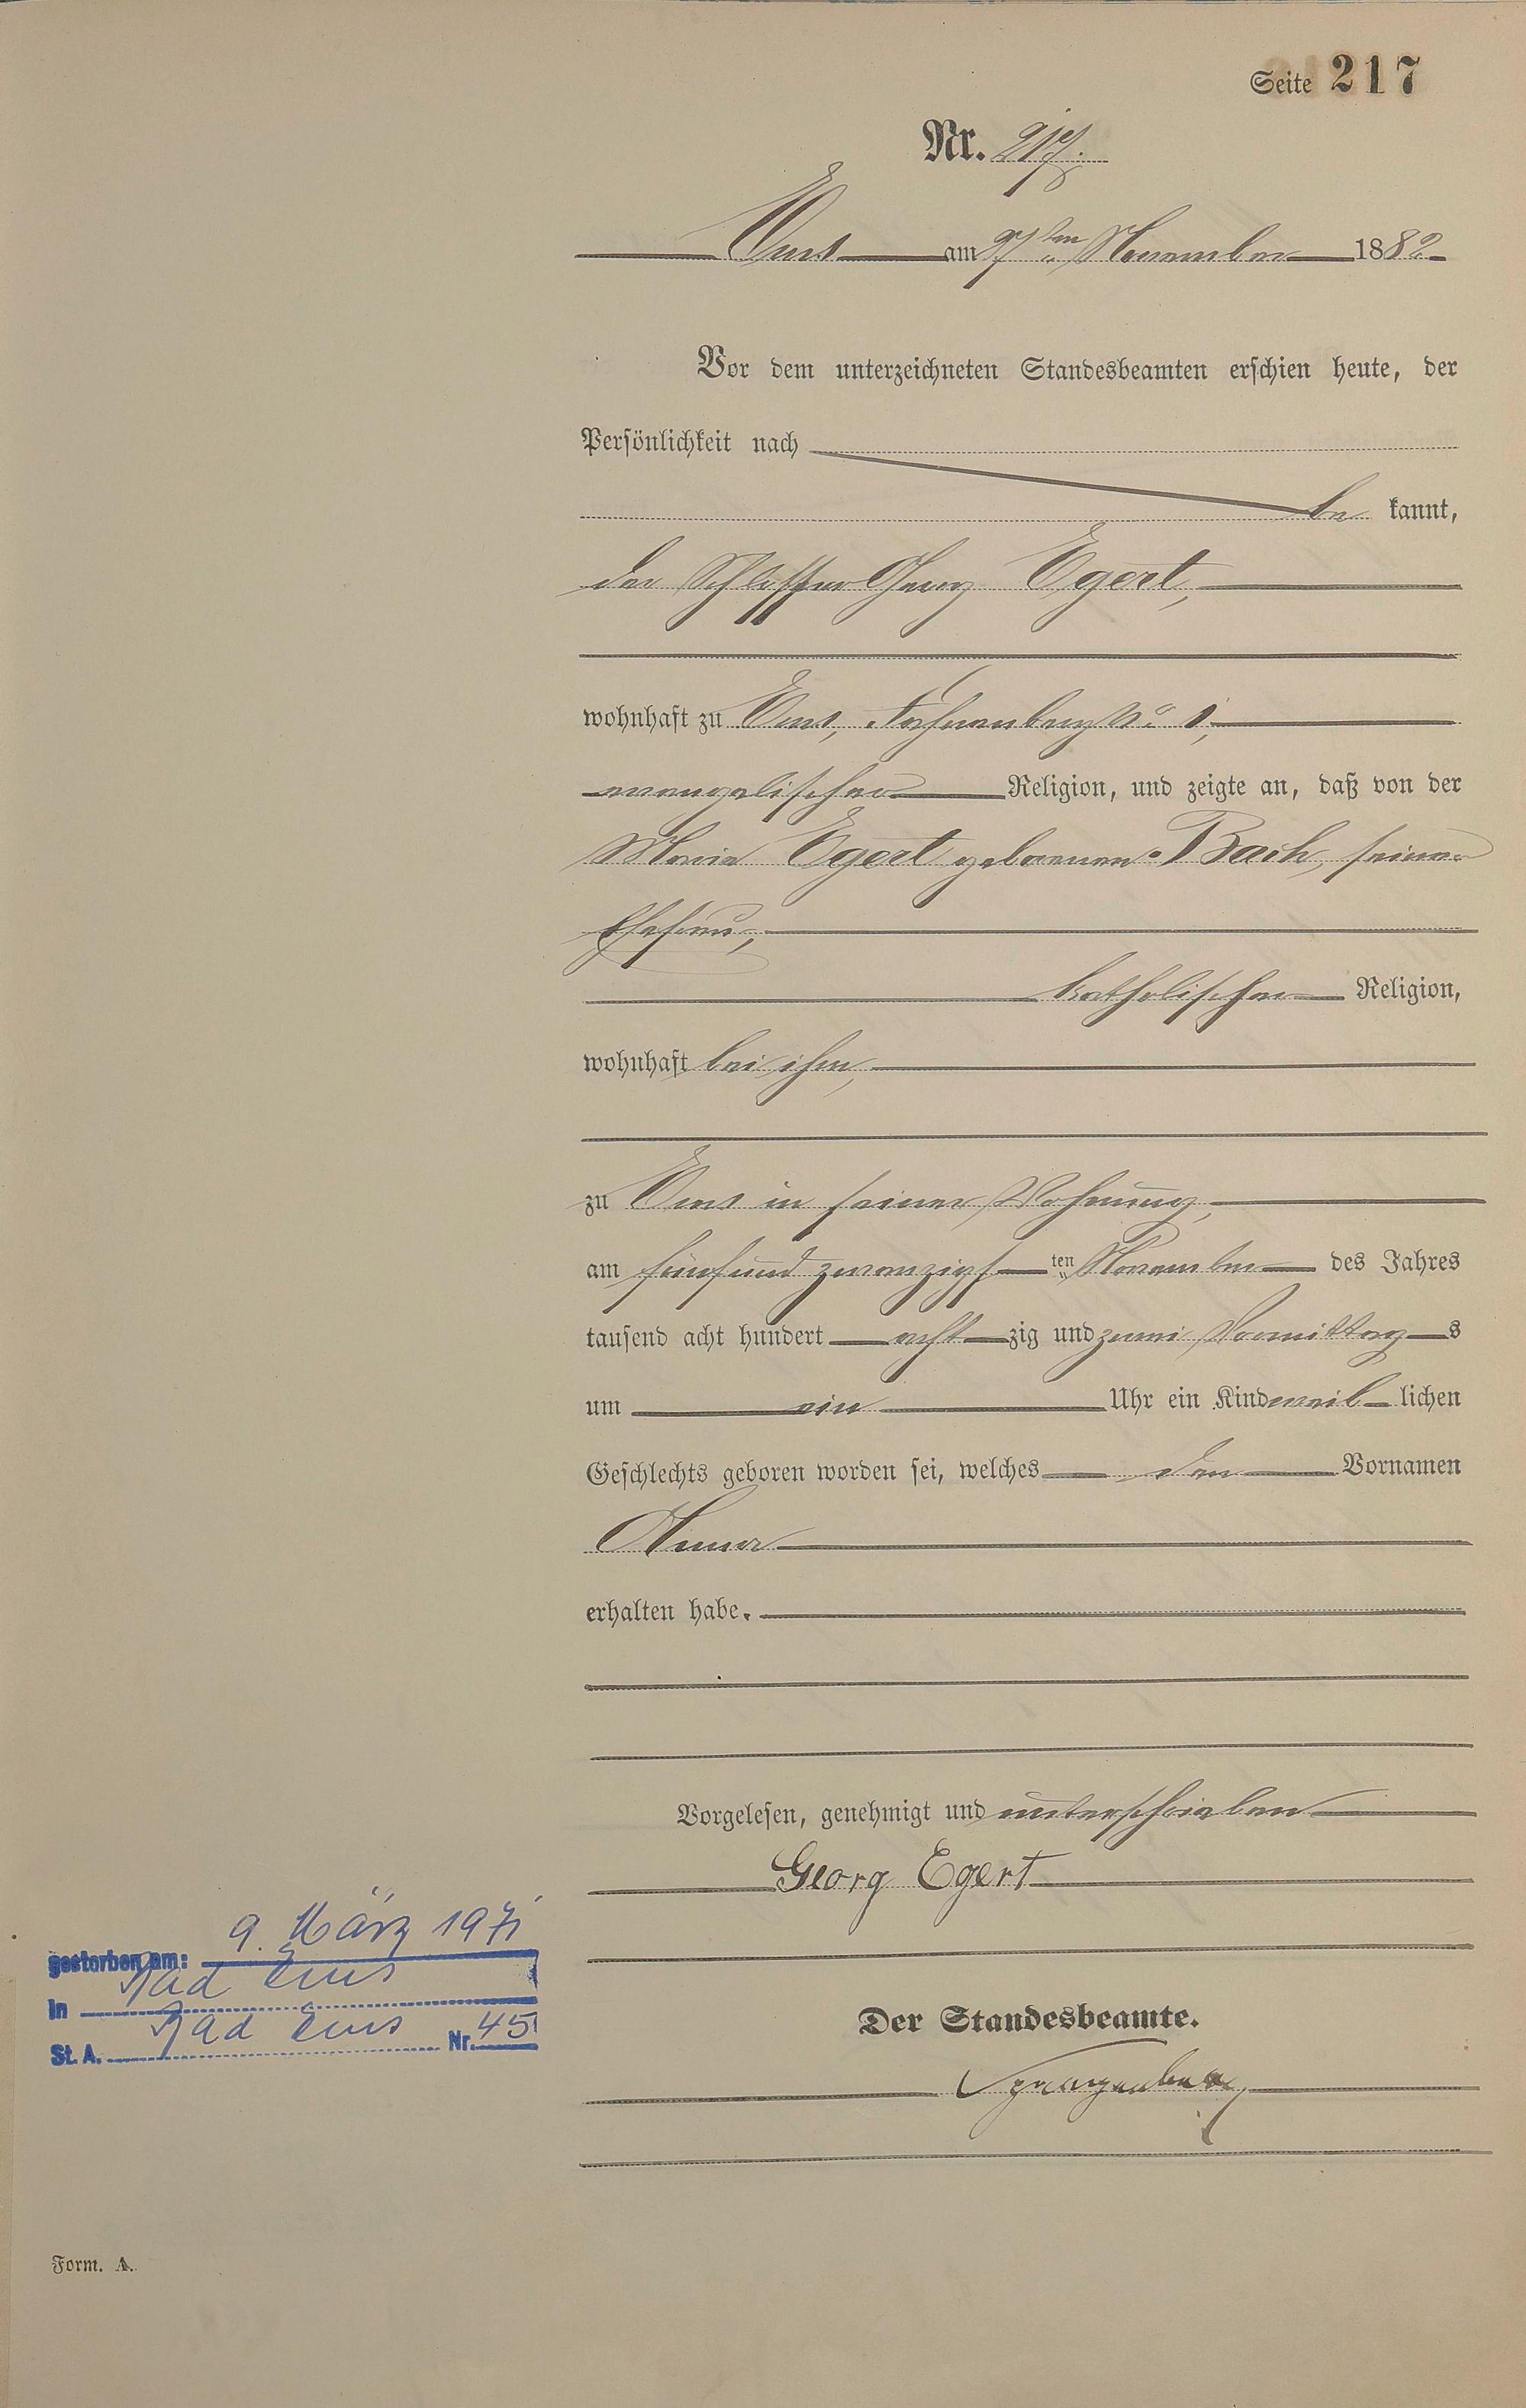 Seite 217
Nr. 217.
Ems am 27ten November 1882
Vor dem unterzeichneten Standesbeamten erschien heute, der
Persönlichkeit nach
be kannt,
der Schlosser Georg Egert,
wohnhaft zu Ems, No 1,
evangelischer Religion, und zeigte an, daß von der
Maria Egert geborenen Bach, seiner
Ehefrau,
katholischer Religion,
wohnhaft bei ihm,
zu Ems in seiner Wohnung,
am fünfundzwanzigsten November des Jahres
tausend acht hundert achtzig und zwei Vormittags
um ein Uhr ein Kind weiblichen
Geschlechts geboren worden sei, welches den Vornamen
Anna
erhalten habe.
Vorgelesen, genehmigt und unterschrieben
Georg Egert
Der Standesbeamte.
gestorben am: 9. März 1971
in Bad Ems
St. A. Bad Ems Nr. 45
Form. A.